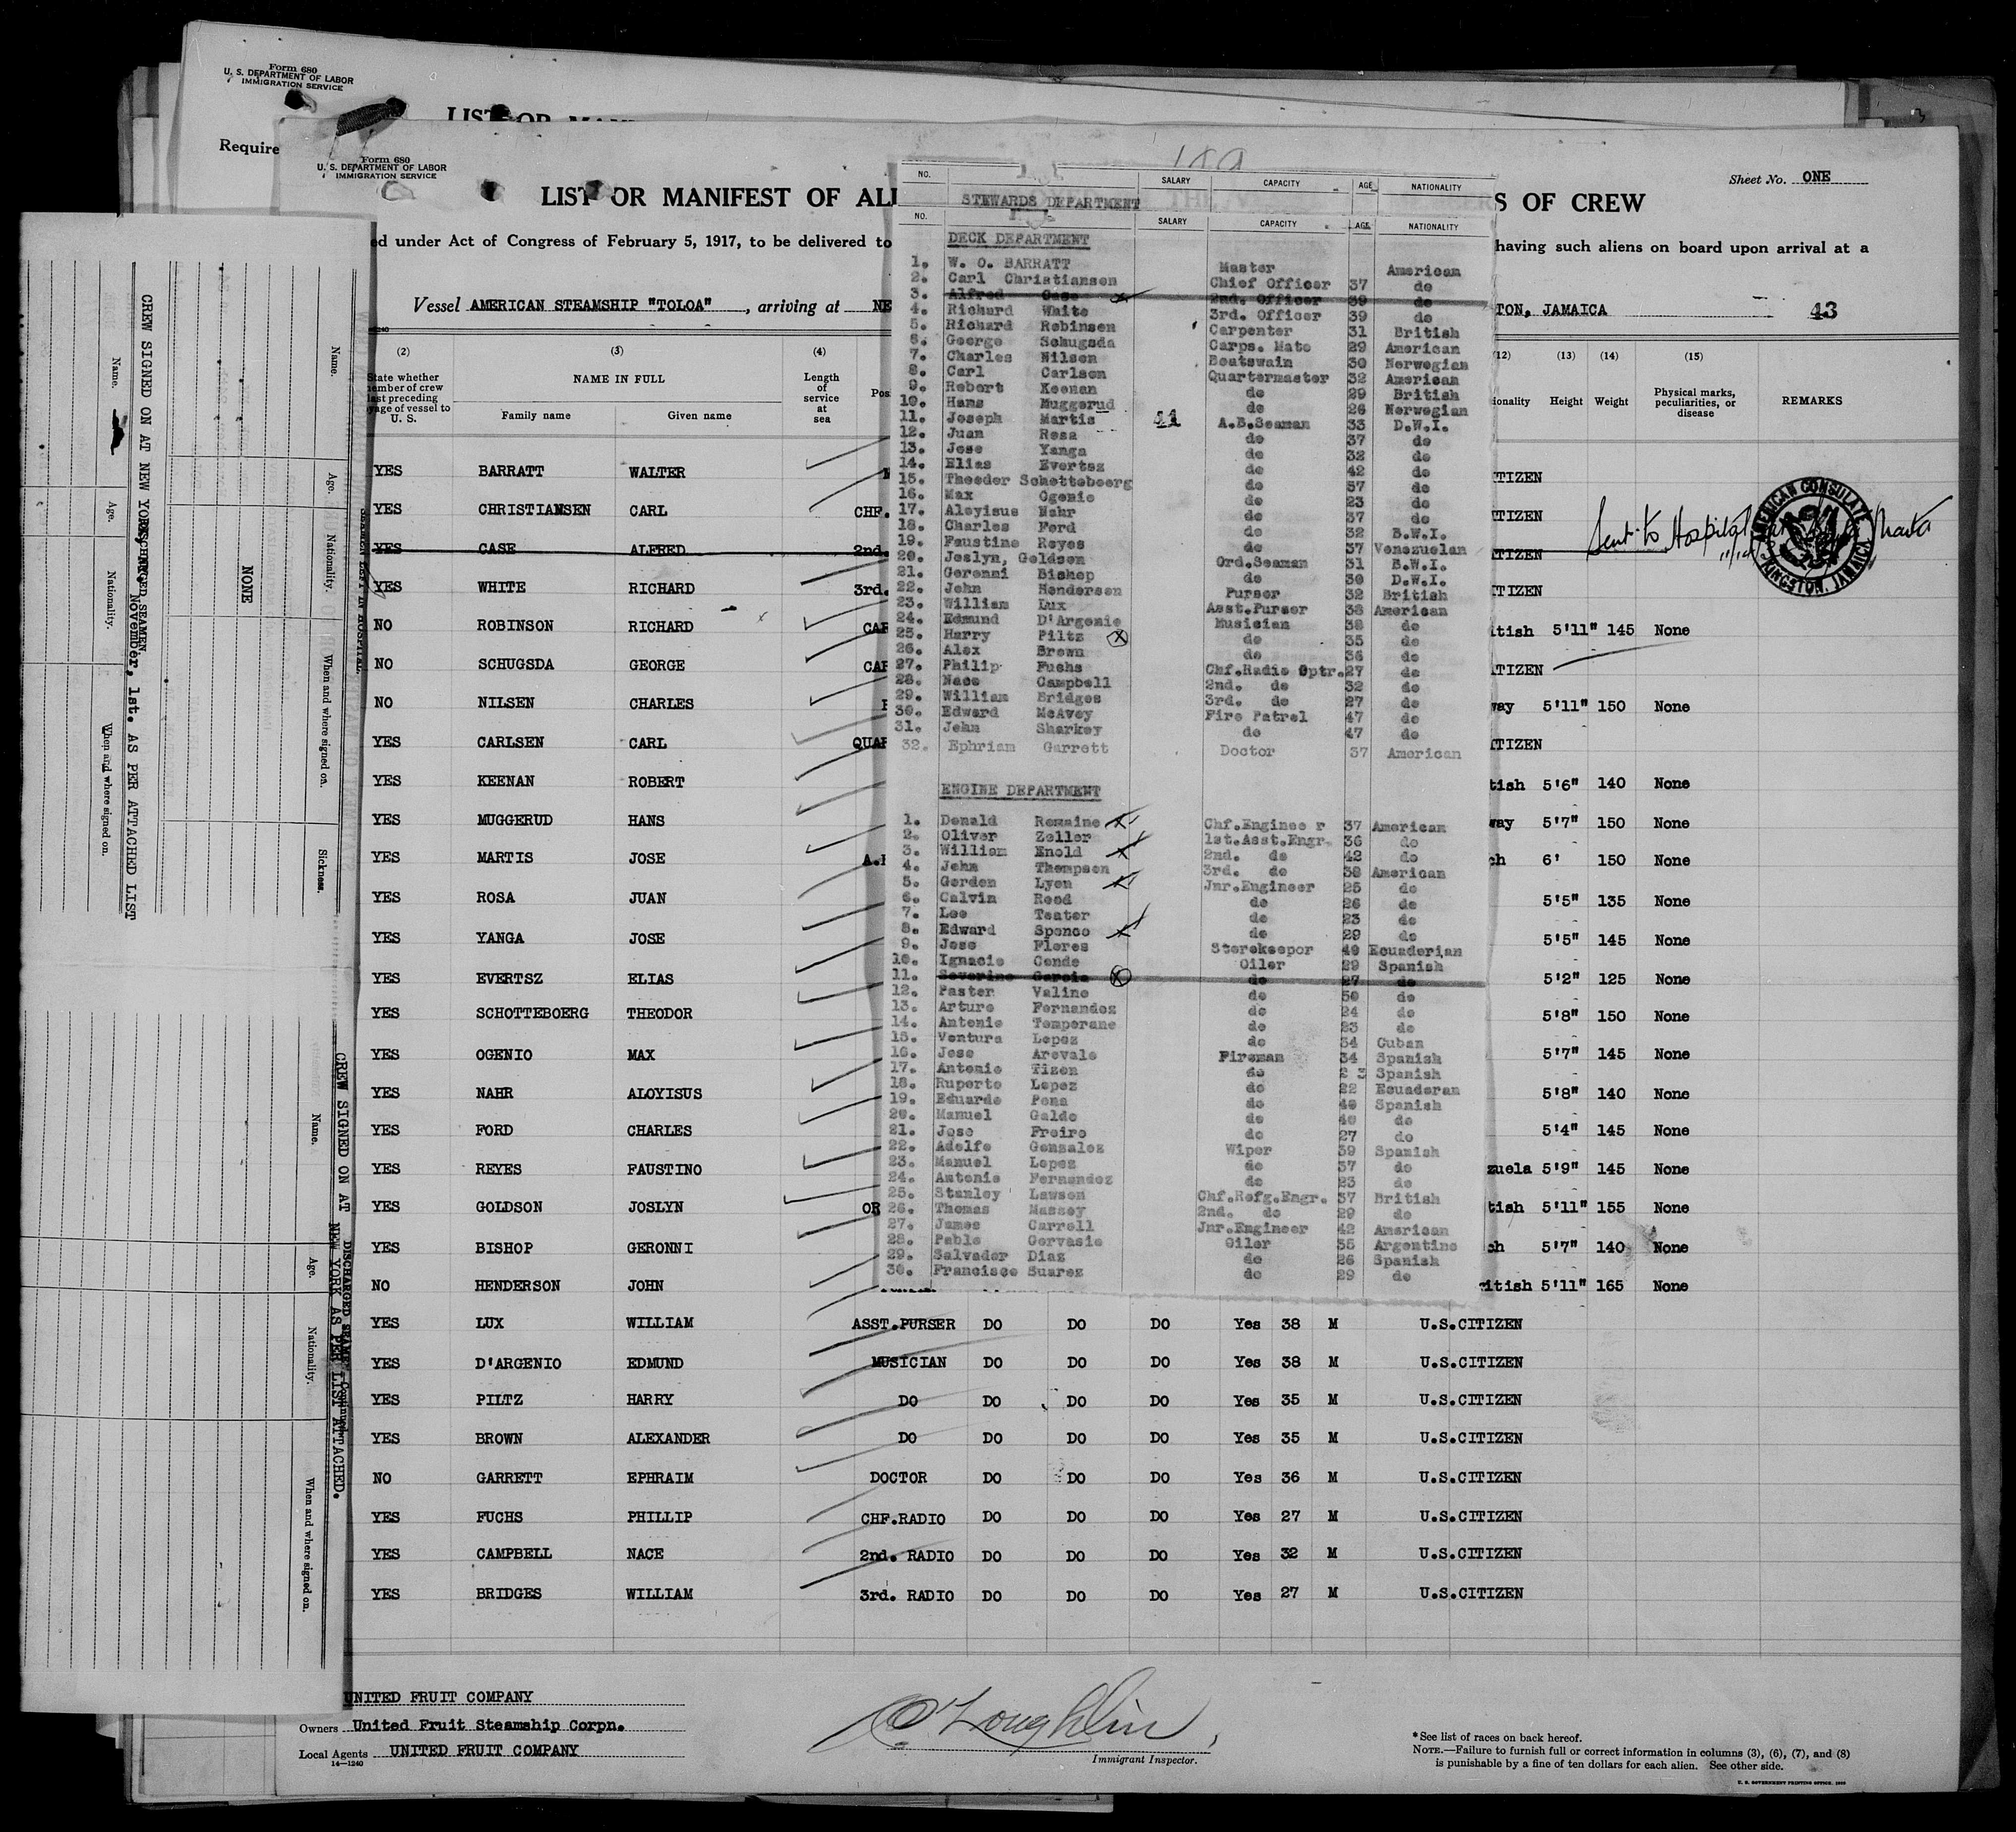 Form 680
U. S. DEPARTMENT OF LABOR
IMMIGRATION SERVICE
Require
Form 680
U. S. DEPARTMENT OF LABOR
IMMIGRATION SERVICE
Sheet No. ONE
LIST OR MANIFEST OF ALI
S OF CREW
ed under Act of Congress of February 5, 1917, to be delivered to
having such aliens on board upon arrival at a
Vessel AMERICAN STEAMSHIP "TOLOA", arriving at NE
TON, JAMAICA
43
(2) (3) (4) (12) (13) (14) (15)
State whether member of crew last preceding voyage of vessel to U. S.
NAME IN FULL
Family name Given name
Length of service at sea
Height Weight
Physical marks, peculiarities, or disease
REMARKS
YES BARRATT WALTER
YES CHRISTIANSEN CARL CHF.
YES CASE ALFRED 2nd.
YES WHITE RICHARD 3rd.
NO ROBINSON RICHARD CAR 5'11" 145 None
NO SCHUGSDA GEORGE
NO NILSEN CHARLES 5'11" 150 None
YES CARLSEN CARL QUAR
YES KEENAN ROBERT 5'6" 140 None
YES MUGGERUD HANS 5'7" 150 None
YES MARTIS JOSE 6' 150 None
YES ROSA JUAN 5'5" 135 None
YES YANGA JOSE 5'5" 145 None
YES EVERTSZ ELIAS 5'2" 125 None
YES SCHOTTEBOERG THEODOR 5'8" 150 None
YES OGENIO MAX 5'7" 145 None
YES NAHR ALOYISUS 5'8" 140 None
YES FORD CHARLES 5'4" 145 None
YES REYES FAUSTINO zuela 5'9" 145 None
YES GOLDSON JOSLYN OR tish 5'11" 155 None
YES BISHOP GERONNI ch 5'7" 140 None
NO HENDERSON JOHN ritish 5'11" 165 None
YES LUX WILLIAM ASST.PURSER DO DO DO Yes 38 M U.S.CITIZEN
YES D'ARGENIO EDMUND MUSICIAN DO DO DO Yes 38 M U.S.CITIZEN
YES PILTZ HARRY DO DO DO DO Yes 35 M U.S.CITIZEN
YES BROWN ALEXANDER DO DO DO DO Yes 35 M U.S.CITIZEN
NO GARRETT EPHRAIM DOCTOR DO DO DO Yes 36 M U.S.CITIZEN
YES FUCHS PHILLIP CHF.RADIO DO DO DO Yes 27 M U.S.CITIZEN
YES CAMPBELL NACE 2nd. RADIO DO DO DO Yes 32 M U.S.CITIZEN
YES BRIDGES WILLIAM 3rd. RADIO DO DO DO Yes 27 M U.S.CITIZEN
Sent to Hospital
AMERICAN CONSULATE
KINGSTON, JAMAICA
NO. SALARY CAPACITY AGE NATIONALITY
STEWARDS DEPARTMENT
NO. SALARY CAPACITY AGE NATIONALITY
DECK DEPARTMENT
1. W. O. BARRATT Master American
2. Carl Christiansen Chief Officer 37 do
3. Alfred Case 2nd. Officer 39 do
4. Richard White 3rd. Officer 39 do
5. Richard Robinson Carpenter 31 British
6. George Schugsda Carps. Mate 29 American
7. Charles Nilsen Boatswain 30 Norwegian
8. Carl Carlsen Quartermaster 32 American
9. Robert Keenan do 29 British
10. Hans Muggerud do 26 Norwegian
11. Joseph Martis A.B.Seaman 33 D.W.I.
12. Juan Rosa do 37 do
13. Jose Yanga do 32 do
14. Elias Evertsz do 42 do
15. Theodor Schotteboerg do 57 do
16. Max Ogenio do 23 do
17. Aloyisus Nahr do 37 do
18. Charles Ford do 32 B.W.I.
19. Faustino Reyes do 37 Venezuelan
20. Joslyn, Goldson Ord.Seaman 31 B.W.I.
21. Geronni Bishop do 30 D.W.I.
22. John Henderson Purser 32 British
23. William Lux Asst.Purser 38 American
24. Edmund D'Argenio Musician 38 do
25. Harry Piltz do 35 do
26. Alex Brown do 36 do
27. Philip Fuchs Chf.Radio Optr. 27 do
28. Nace Campbell 2nd. do 32 do
29. William Bridges 3rd. do 27 do
30. Edward McAvoy Fire Patrol 47 do
31. John Sharkey do 47 do
32. Ephriam Garrett Doctor 37 American
ENGINE DEPARTMENT
1. Donald Romaine Chf.Enginee r 37 American
2. Oliver Zeller 1st.Asst.Engr. 36 do
3. William Enold 2nd. do 42 do
4. John Thompson 3rd. do 30 American
5. Gordon Lyon Jnr.Engineer 25 do
6. Calvin Reed do 26 do
7. Lee Teater do 23 do
8. Edward Spence do 29 do
9. Jose Flores Storekeeper 40 Ecuaderian
10. Ignacio Conde Oiler 29 Spanish
11. Severino Garcia do 27 do
12. Pastor Valino do 50 do
13. Arturo Fernandez do 24 do
14. Antonio Temperane do 23 do
15. Ventura Lopez do 34 Cuban
16. Jose Arevalo Fireman 34 Spanish
17. Antonio Tizon do 2 3 Spanish
18. Ruperto Lopez do 22 Ecuadoran
19. Eduardo Pena do 40 Spanish
20. Manuel Galdo do 40 do
21. Jose Freire do 27 do
22. Adolfo Gonzalez Wiper 39 Spanish
23. Manuel Lopez do 37 do
24. Antonio Fernandez do 23 do
25. Stanley Lawson Chf.Refg.Engr. 37 British
26. Thomas Massey 2nd. do 29 do
27. James Carroll Jnr.Engineer 42 American
28. Pablo Gervasio Oiler 35 Argentine
29. Salvador Diaz do 26 Spanish
30. Francisco Suarez do 29 do
CREW SIGNED ON AT NEW YORK, November, 1st. AS PER ATTACHED LIST
DISCHARGED SEAMEN.
Name. Age. Nationality. When and where signed on.
NONE
SEAMEN LEFT IN HOSPITAL
Name. Age. Nationality. When and where signed on. Sickness.
CREW SIGNED ON AT NEW YORK AS PER LIST ATTACHED.
DISCHARGED SEAMEN Continued
Name. Age. Nationality. When and where signed on.
UNITED FRUIT COMPANY
Owners United Fruit Steamship Corpn.
Local Agents UNITED FRUIT COMPANY
14—1240
O'Loughlin
Immigrant Inspector.
* See list of races on back hereof.
NOTE.—Failure to furnish full or correct information in columns (3), (6), (7), and (8)
is punishable by a fine of ten dollars for each alien. See other side.